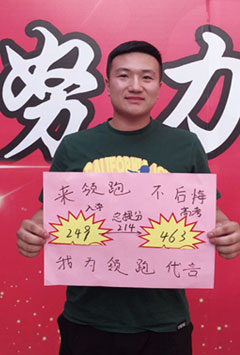 努力
CALIFORNIA
来领跑 不后悔
入学 总提分 高考
249 214 463
我为领跑代言